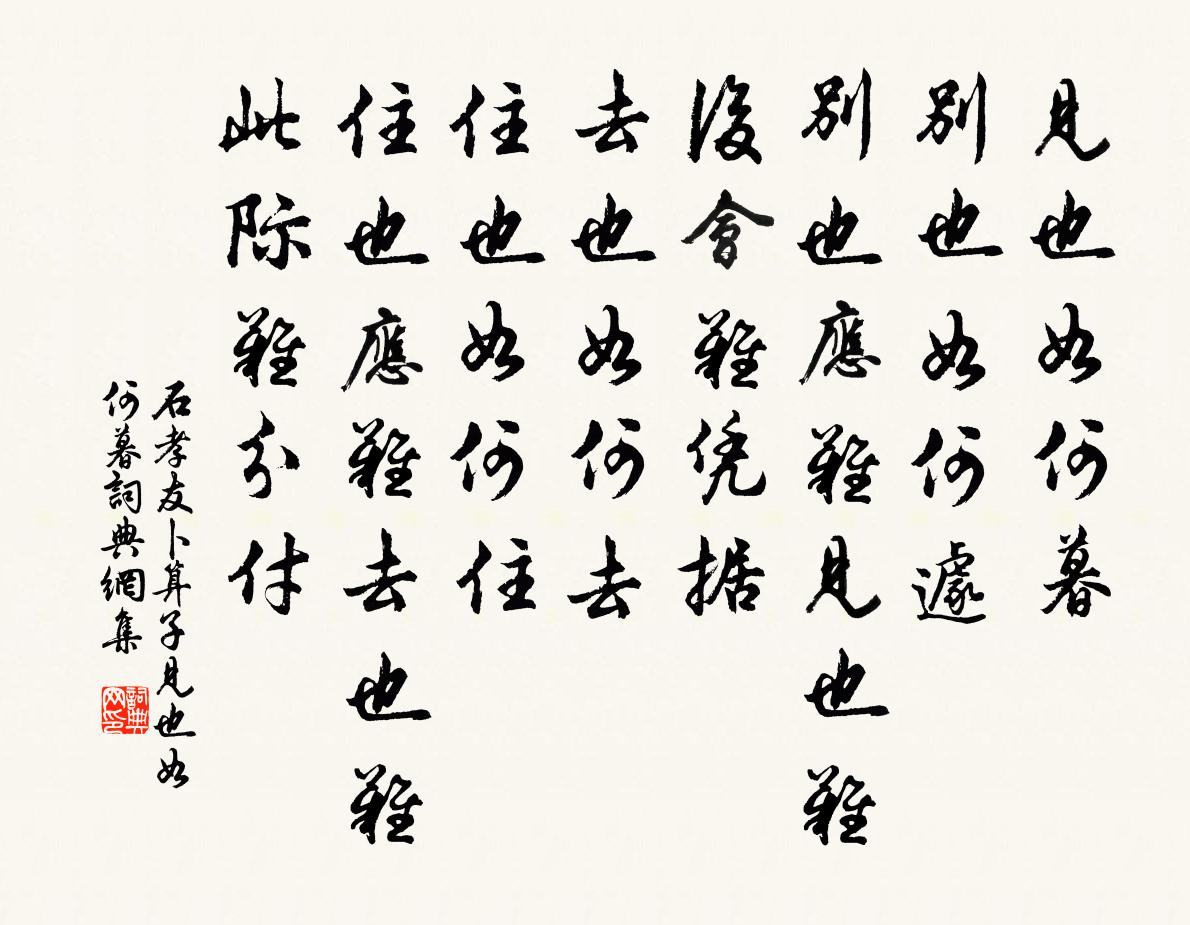 見也如何暮
別也如何遽
別也應難見也難
後會難凭据
去也如何去
住也如何住
住也應難去也難
此际難分付
石孝友卜算子見也如
何暮詞典網集
詞典
网印